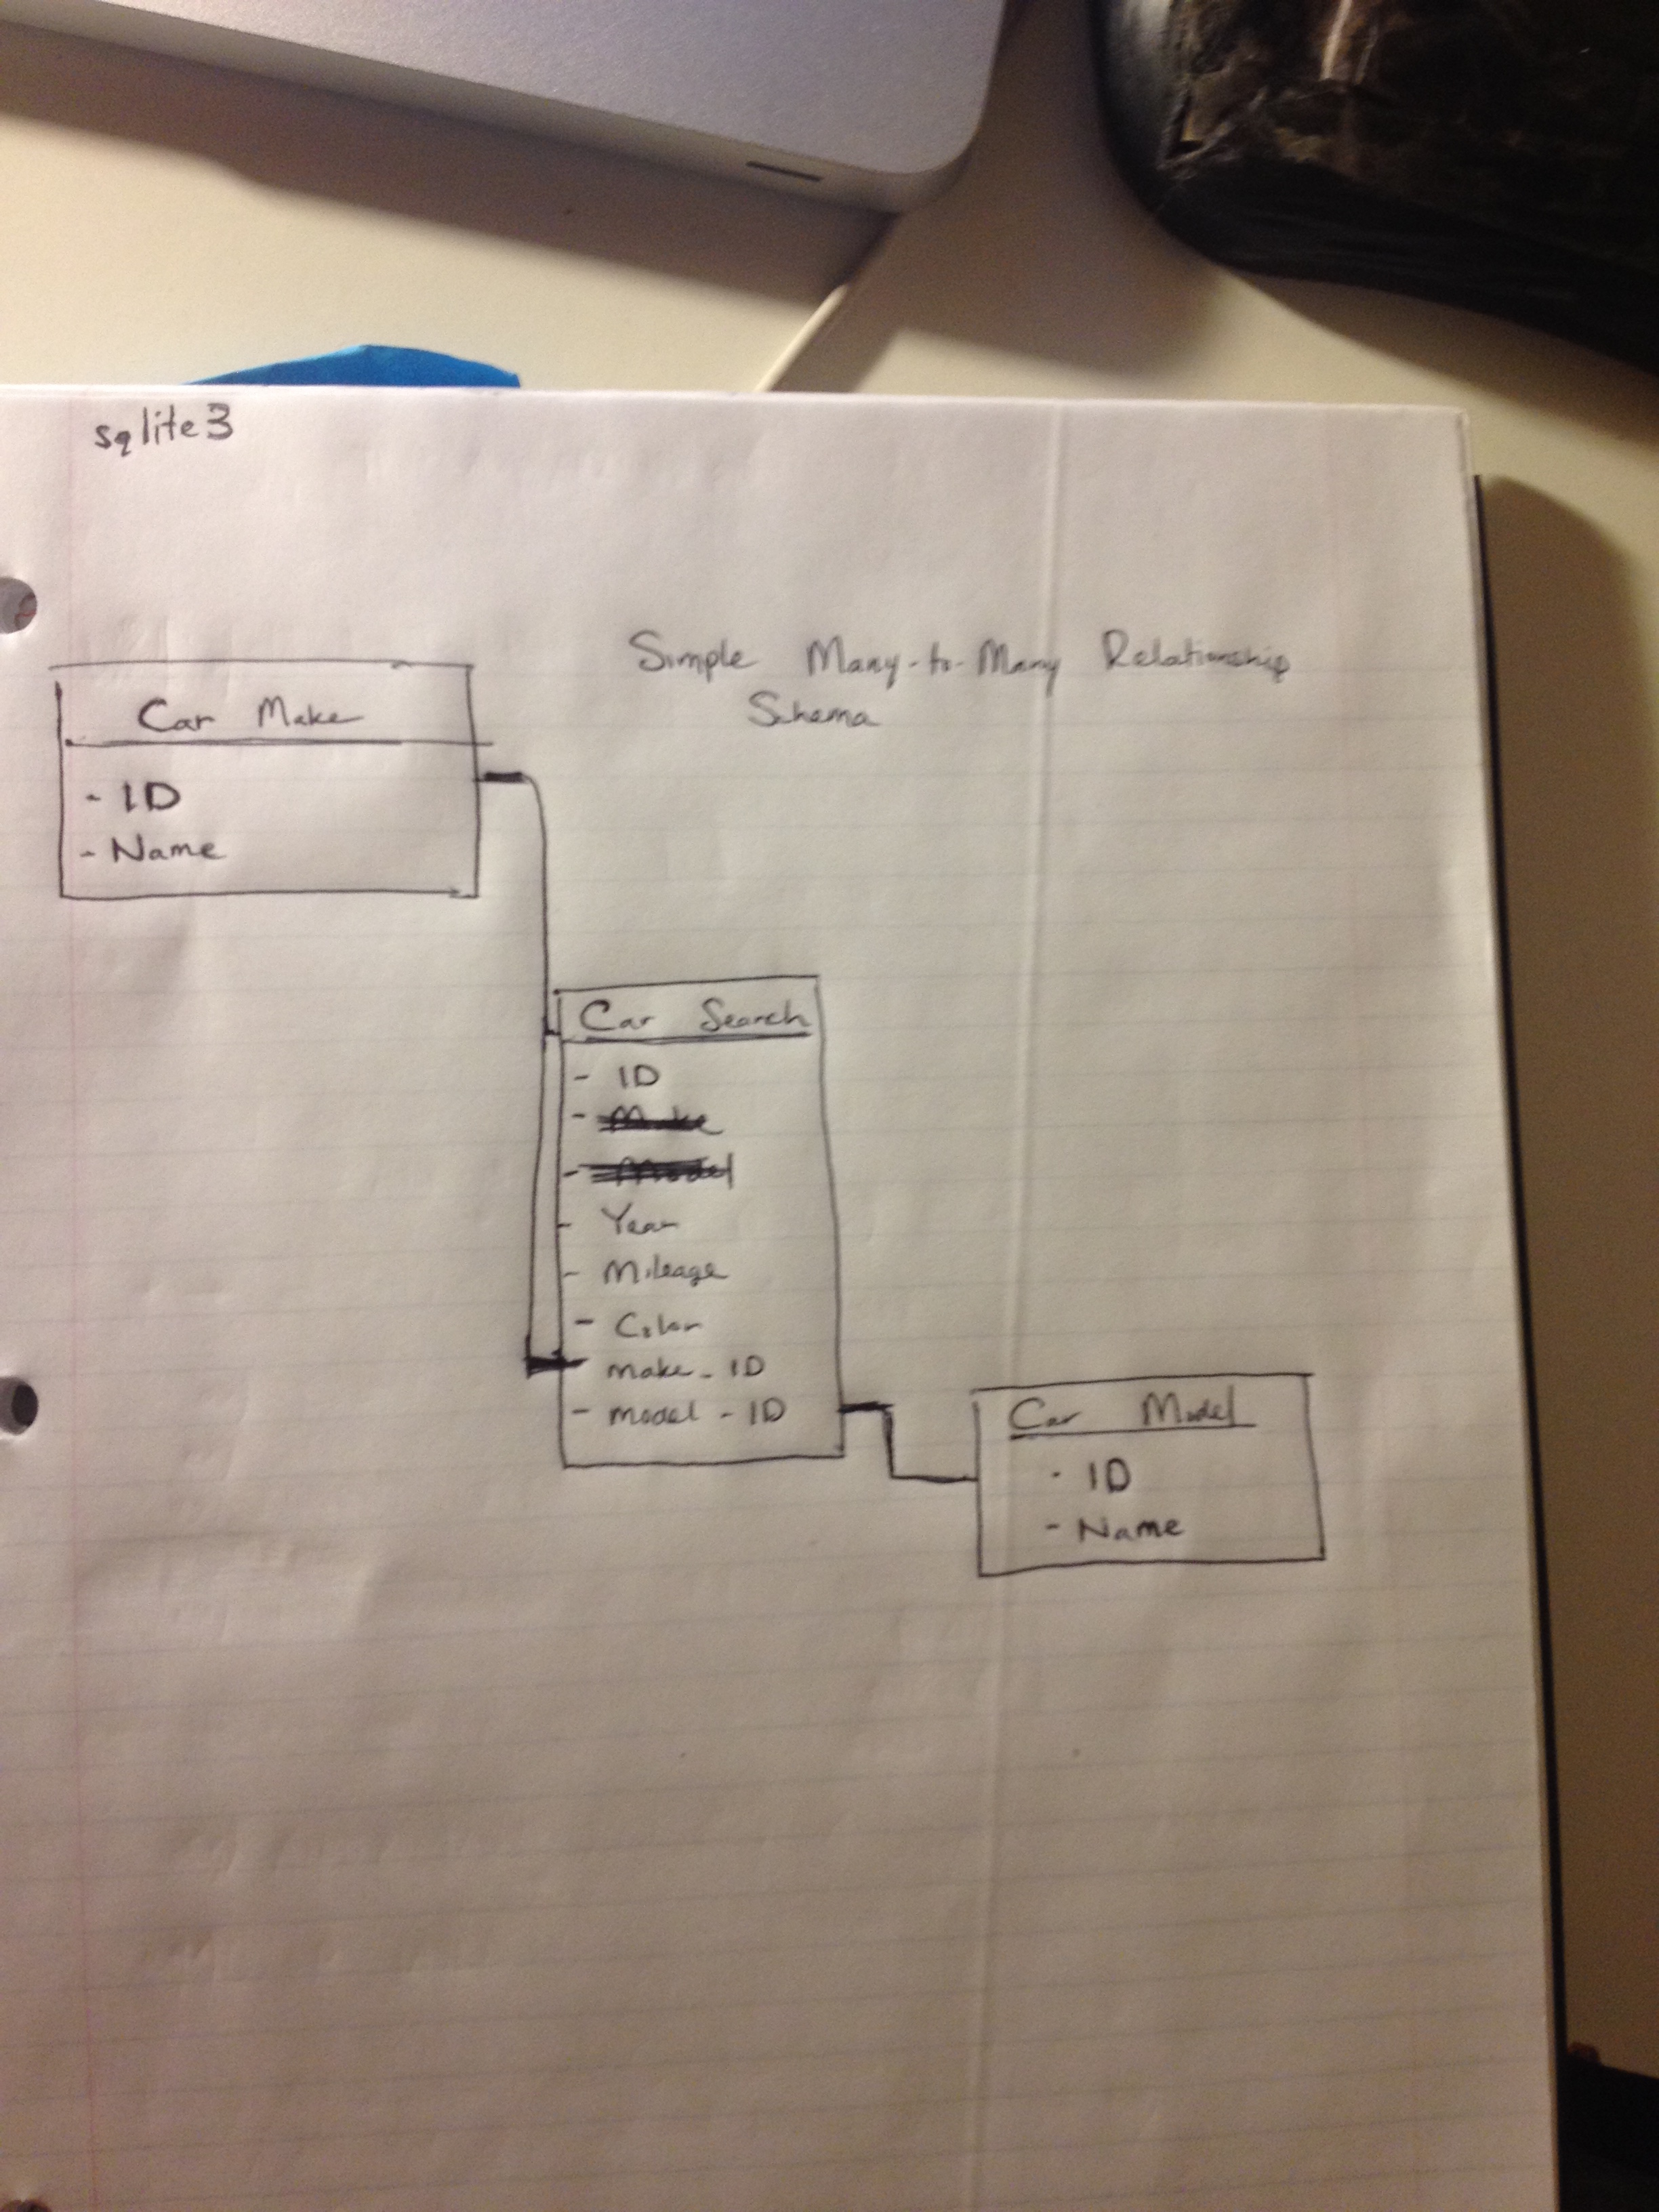 sqlite3
Simple Many-to-Many Relationship
Schema
Car Make
- ID
- Name
Car Search
- ID
- Make
- Model
- Year
- Mileage
- Color
- make_ID
- model - ID
Car Model
- ID
- Name